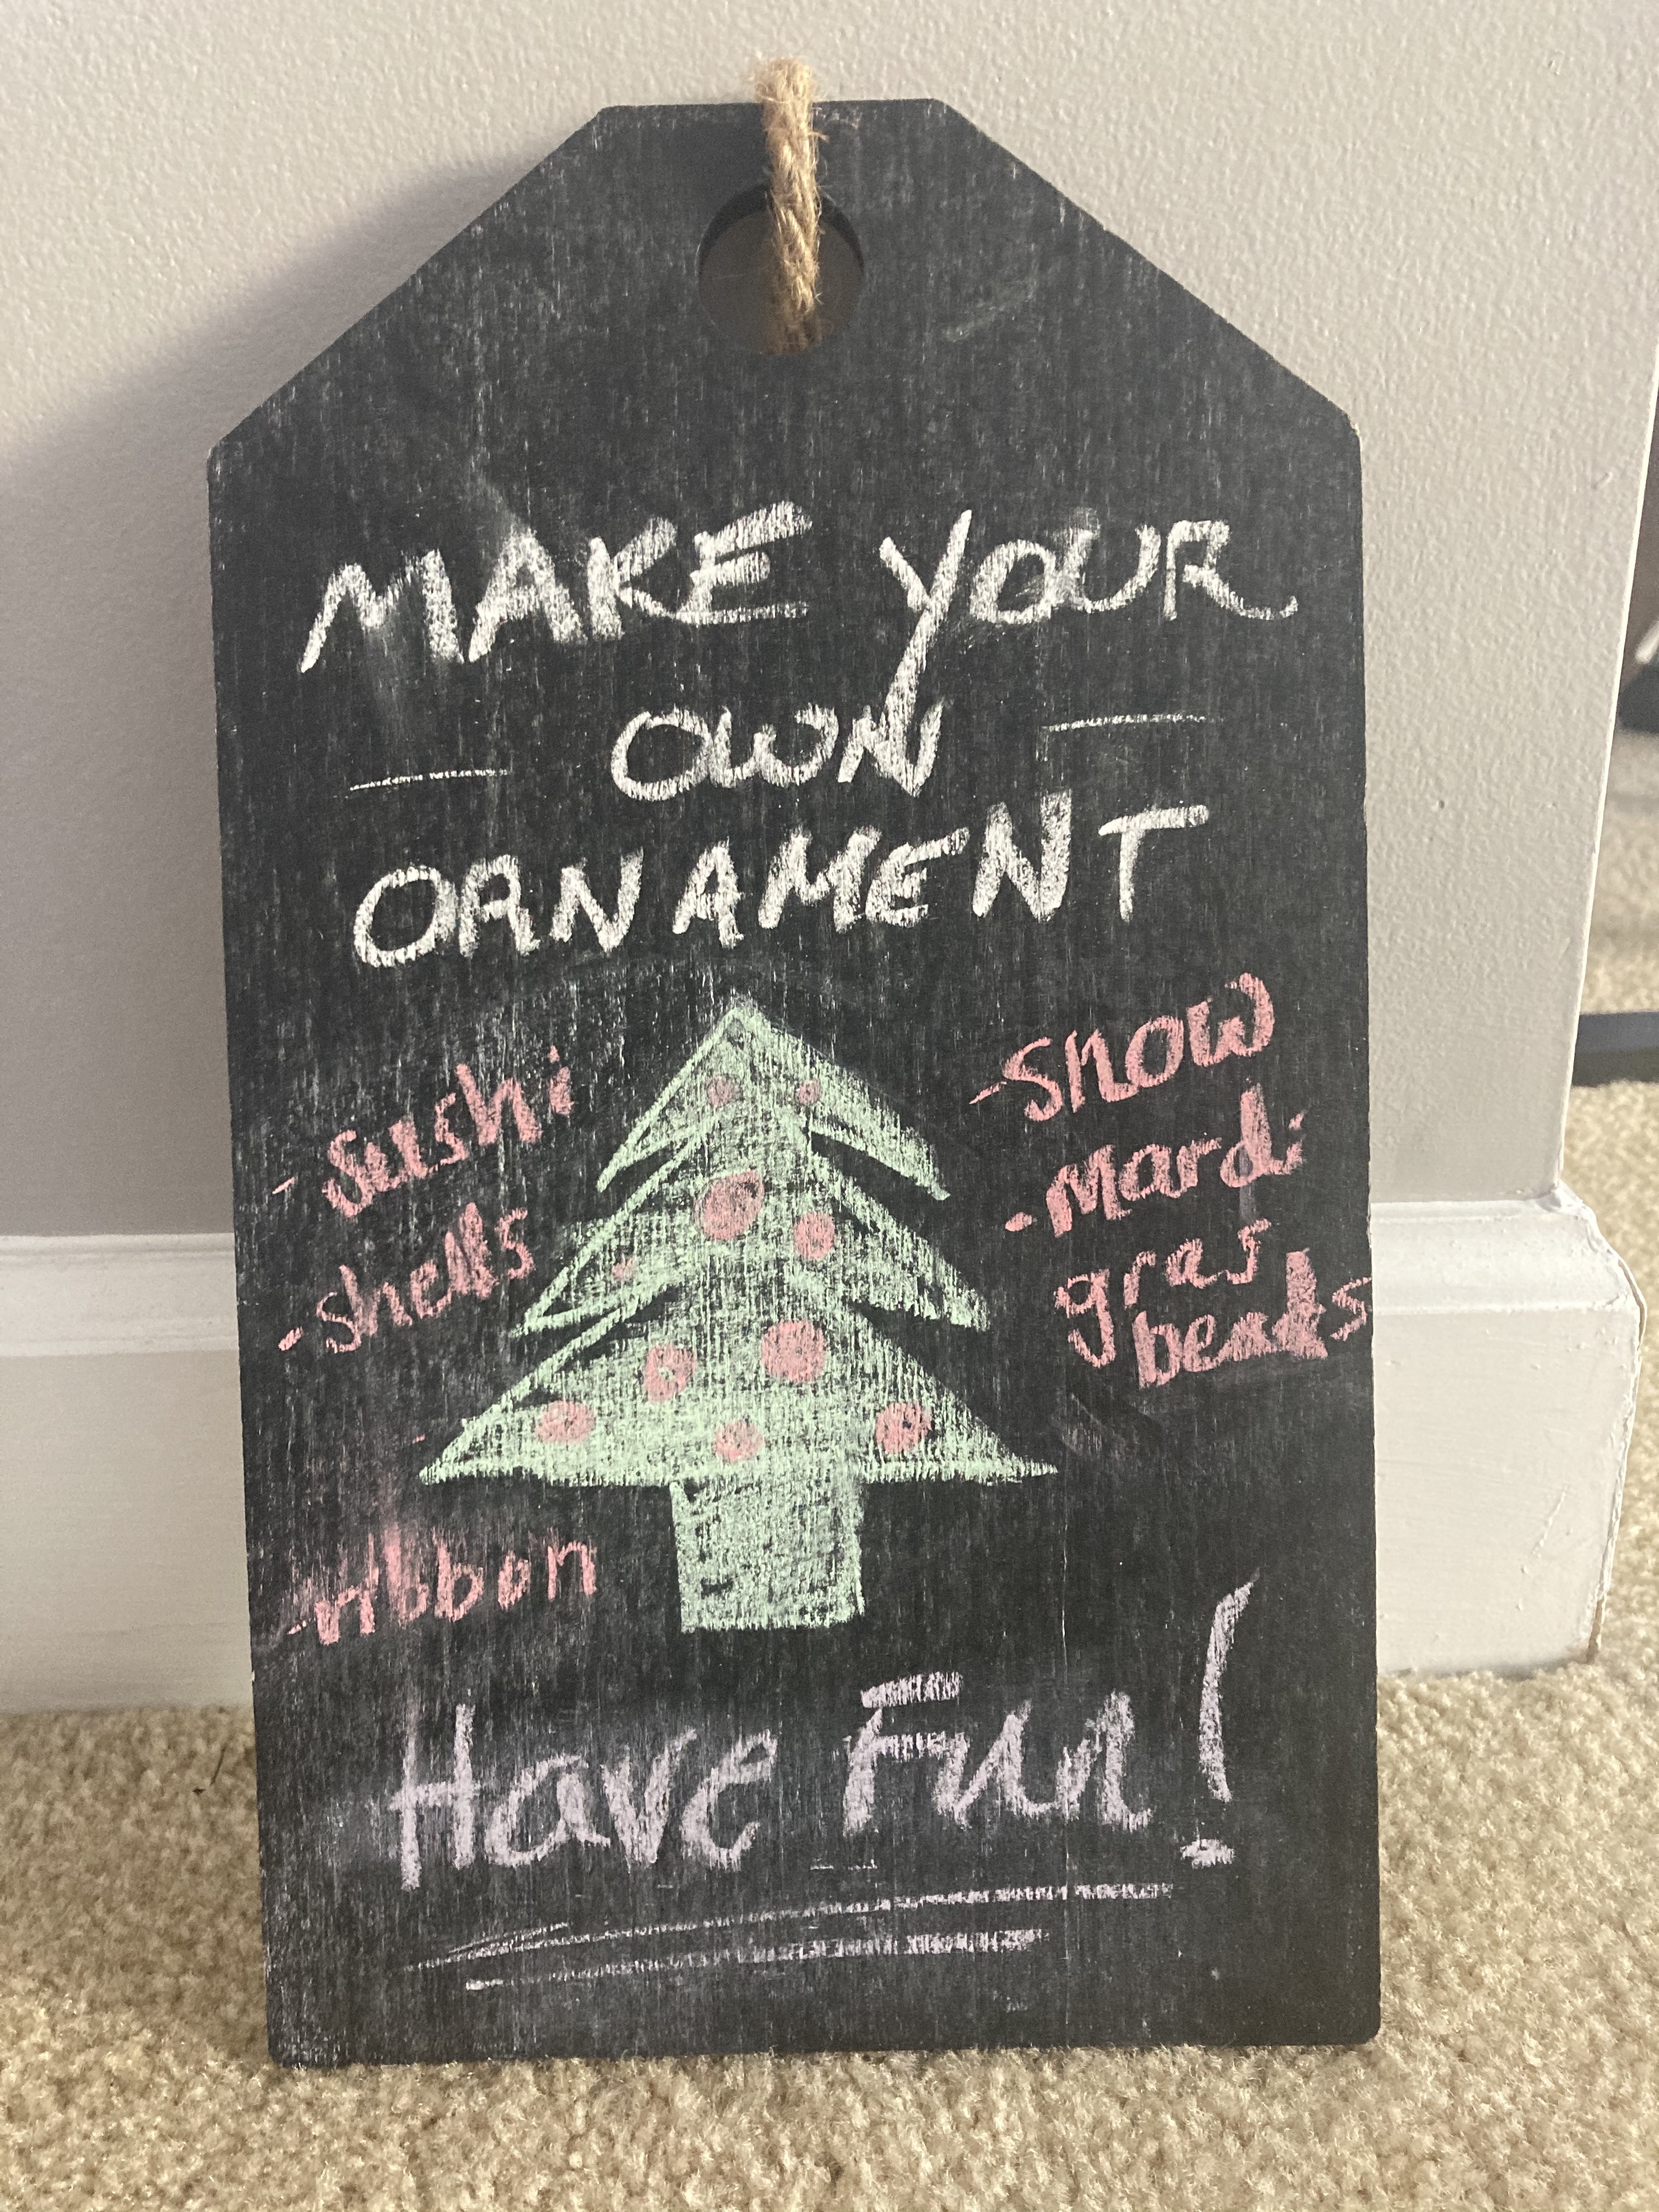 MAKE YOUR
OWN
ORNAMENT
- sushi
- shells
- ribbon
- snow
- Mardi
gras
beads
Have Fun!